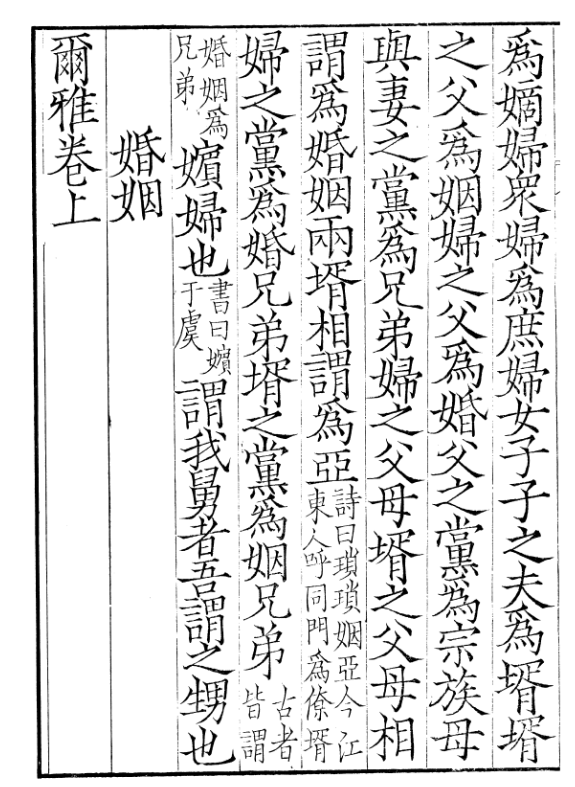 爲嫡婦衆婦爲庶婦女子子之夫爲壻壻
之父爲姻婦之父爲婚父之黨爲宗族母
與妻之黨爲兄弟婦之父母壻之父母相
謂爲婚姻兩壻相謂爲亞詩曰瑣瑣姻亞今江東人呼同門爲僚壻
婦之黨爲婚兄弟壻之黨爲姻兄弟古者皆謂
婚姻爲兄弟嬪婦也書曰嬪于虞謂我舅者吾謂之甥也
婚姻
爾雅卷上